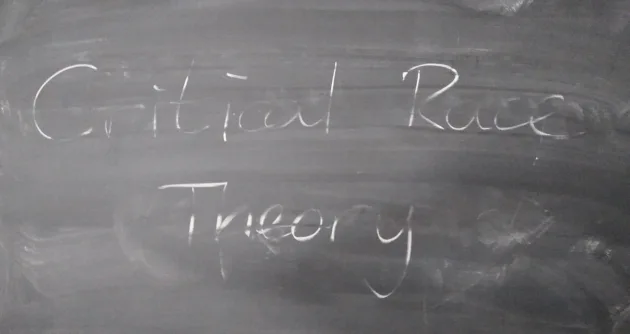 Critical Race
Theory